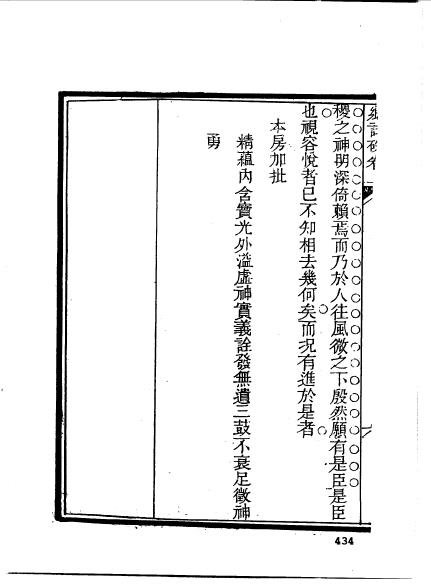 鄉試硃卷
稷之神明深倚賴焉而乃於人往風微之下殷然願有是臣是臣
也視容悅者已不知相去幾何矣而況有進於是者
本房加批
精蘊內含寶光外溢虛神實義詮發無遺三鼓不衰足徵神
勇
434